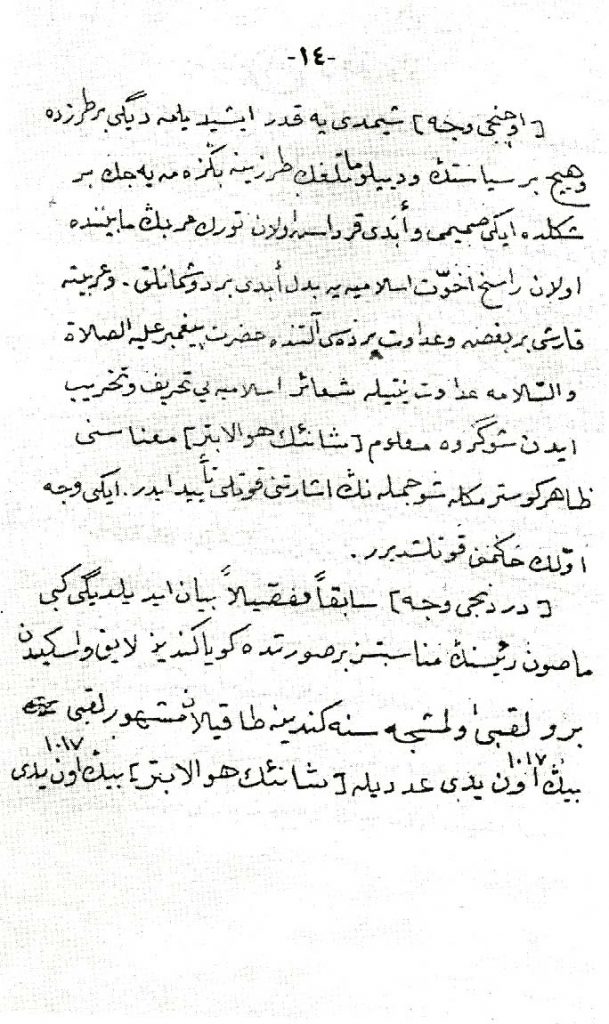 -١٤-
[اوچنجی وجه] شیمدی یه قدر ایشیدیلمه دیگی بر طرزده
وهیچ بر سیاستڭ ودیپلوماتلغڭ طرزینه بڭزه مه یه جك بر
شكلده ایكی صمیمی وأبدی قرداش اولان تورك عربڭ مابیننده
اولان راسخ اخوّت اسلامیه یه بدل أبدی بر دوشمانلق. وعربیته
قارشی بر بغض وعداوت پرده سی آلتنده حضرت پیغمبر علیه الصلاة
والسّلامه عداوت نیتیله شعائر اسلامیه یی تحریف وتخریب
ایدن شو گروه معلوم [شانئك هو الابتر] معناسنی
ظاهر كوسترمكله شو جمله نڭ اشارتنی قوتلی تأیید ایدر. ایكی وجه
اوّلڭ حكمنی قوتلشدیرر.
[دردنجی وجه] سابقاً مفصّلاً بیان ایدیلدیگی كبی
ماصون رئیسنڭ مناسبتسز بر صورتده كویا كندینه لایق واسكیدن
برو لقبی اولمشجه سنه كندینه طاقیلان مشهور لقبی
بیڭ اون یدی ١٠١٧ عددیله [شانئك هو الابتر] بیڭ اون یدی ١٠١٧